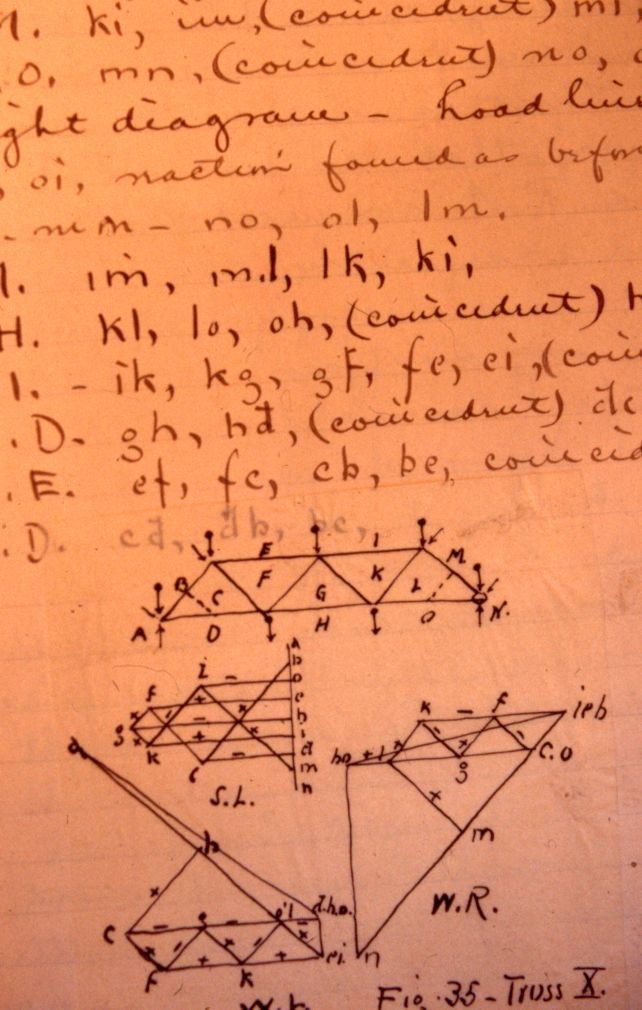 M. ki, im, (coincident) ml,
O. mn, (coincident) no,
ght diagram - Load line
, oi, reaction found as before
- mn - no, ol, lm.
1. im, ml, lk, ki,
H. kl, lo, oh, (coincident) h
1. - ik, kg, gf, fe, ei, (coin
.D. gh, hd, (coincident) dc
.E. ef, fc, cb, be, coincid
.D. cd, db, bc,
E I
B C F G K L M
A D H O N.
A
b
o
e
h
i
d
m
n
f i
g
k c
S.L.
a
b
c e d.h.o.
f k ei
k f ieb
ho + l g c.o
m
n
W.R.
Fig. 35 - Truss X.